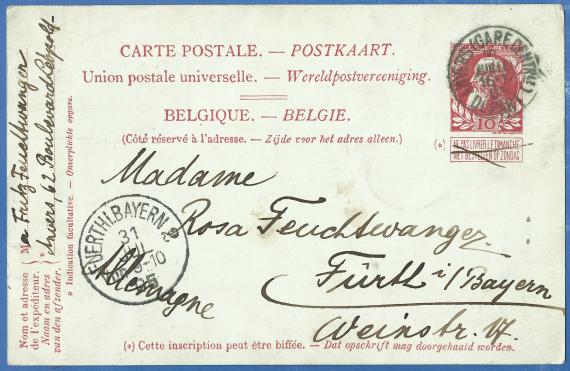 CARTE POSTALE. — POSTKAART.
Union postale universelle. — Wereldpostvereeniging.
BELGIQUE. — BELGIE.
(Côté réservé à l'adresse. — Zijde voor het adres alleen.)
BELGIQUE-BELGIE
10
(*)
NE PAS LIVRER LE DIMANCHE
NIET BESTELLEN OP ZONDAG
Madame
Rosa Feuchtwanger
Fürth i/Bayern
Weinstr. 17.
Allemagne
FUERTH I. BAYERN 2
31
JUL
(*) Cette inscription peut être biffée. — Dat opschrift mag doorgehaald worden.
Nom et adresse
de l'expéditeur.
Naam en adres
van den afzender.
M Fritz Feuchtwanger
Anvers, 62 Boulevard Léopold
* Indication facultative. — Onverplichte opgave.